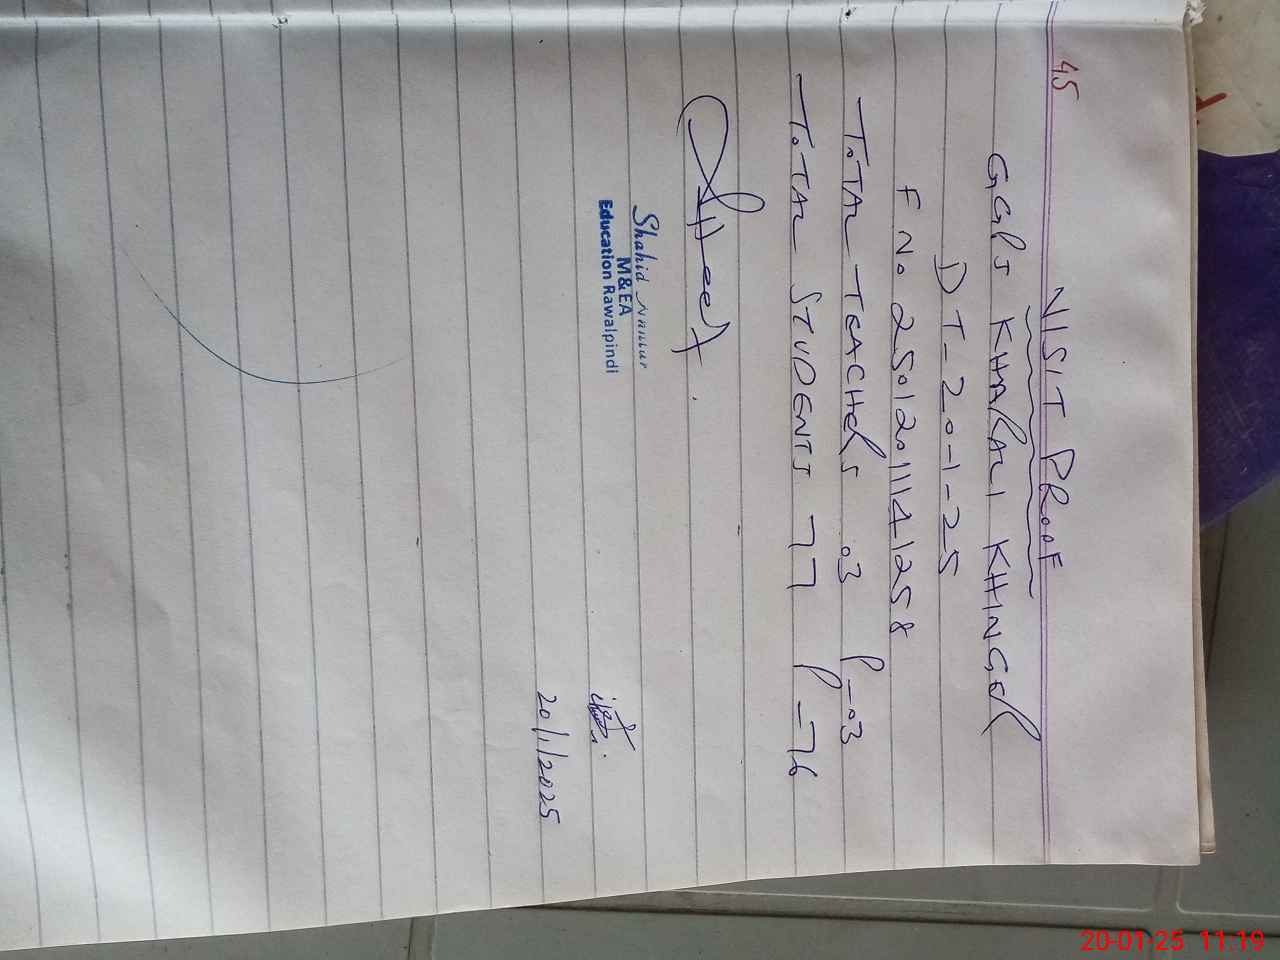 45
VISIT PROOF
GGPS KHARALI KHINGER
DT-20-1-25
F No 25012011141258
TOTAL TEACHERS 03 P-03
TOTAL STUDENTS 77 P-76
Shahid
M&EA
Education Rawalpindi
20/1/2025
20-01-25 11:19